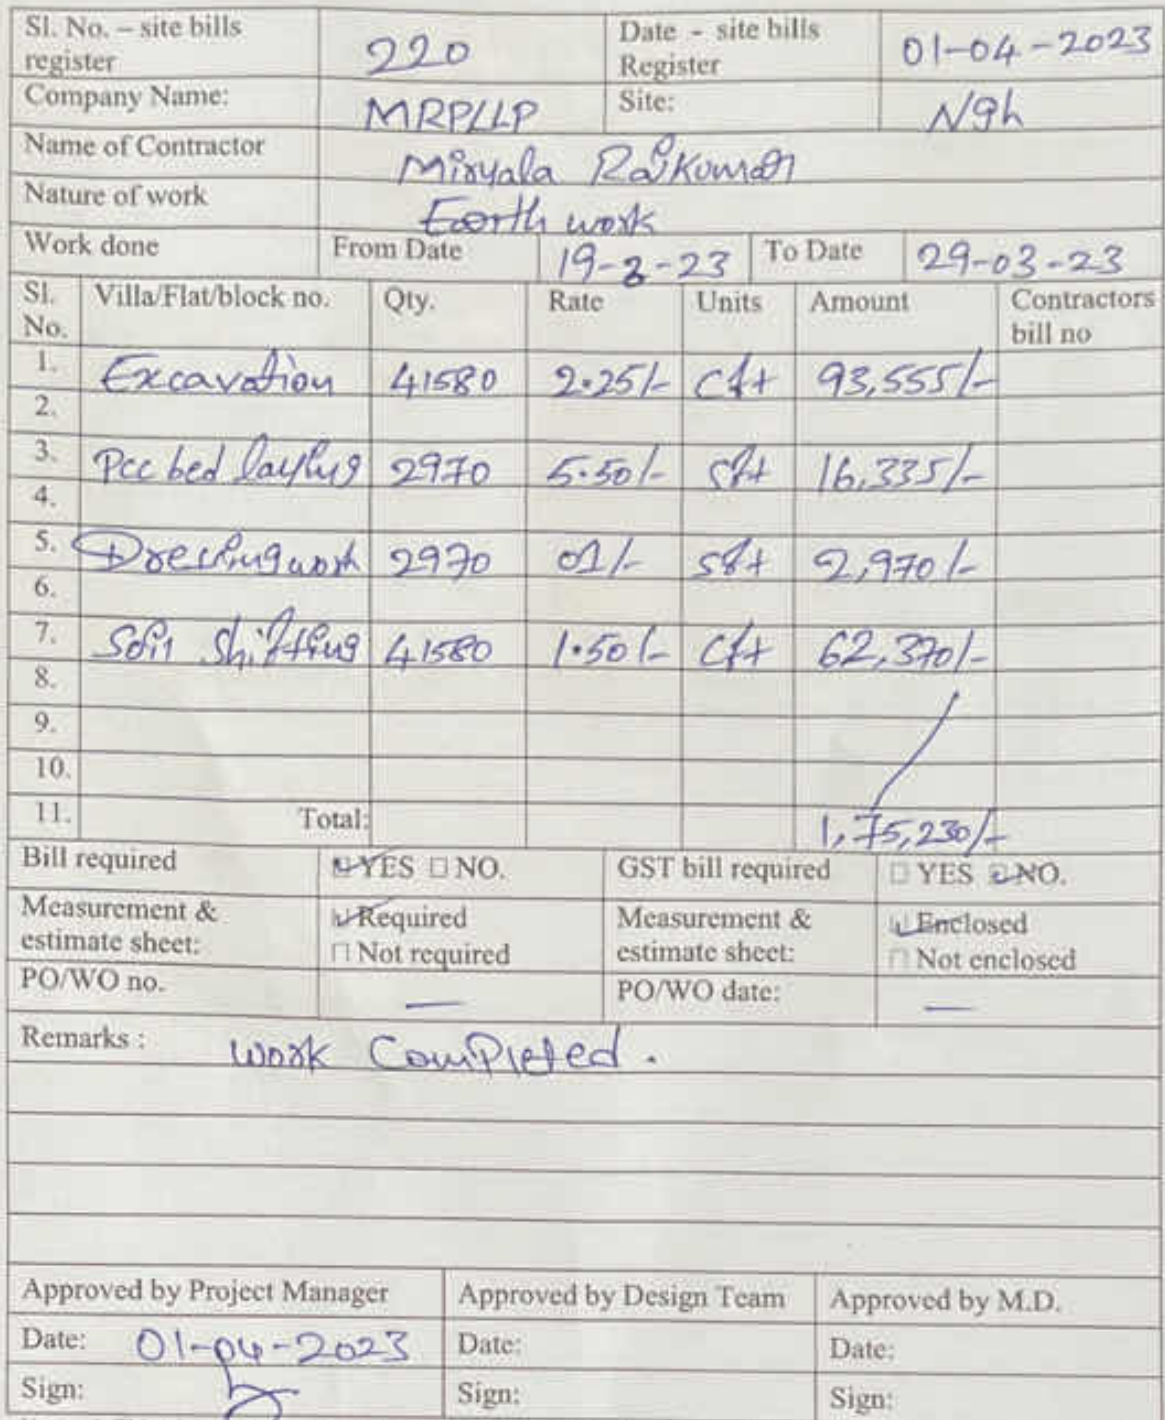 Sl. No. – site bills register 220 Date - site bills Register 01-04-2023
Company Name: MRPLLP Site: Ngh
Name of Contractor Miryala Rajkumar
Nature of work Earth work
Work done From Date 19-3-23 To Date 29-03-23
Sl. No. Villa/Flat/block no. Qty. Rate Units Amount Contractors bill no
1. Excavation 41580 2.25/- cft 93,555/-
2.
3. Pcc bed laying 2970 5.50/- sft 16,335/-
4.
5. Dressing work 2970 01/- sft 2,970/-
6.
7. Soil shifting 41580 1.50/- cft 62,370/-
8.
9.
10.
11. Total: 1,75,230/-
Bill required YES NO. GST bill required YES NO.
Measurement & estimate sheet: Required Measurement & estimate sheet: Enclosed
Not required Not enclosed
PO/WO no. — PO/WO date: —
Remarks : work Completed.
Approved by Project Manager Approved by Design Team Approved by M.D.
Date: 01-04-2023 Date: Date:
Sign: Sign: Sign: